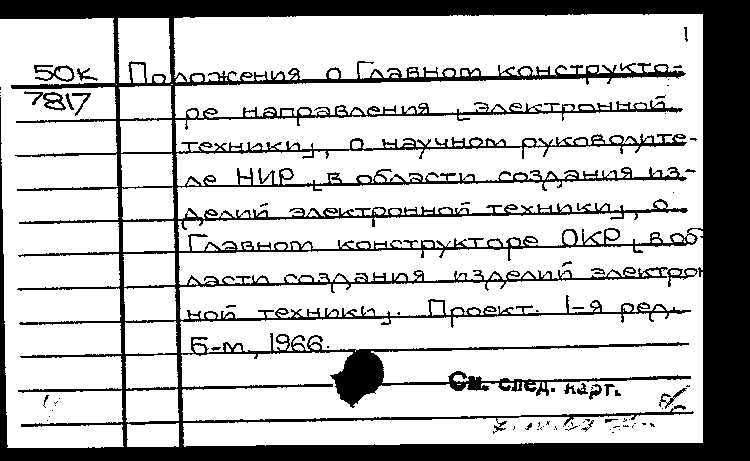 1
50к Положения о Главном конструкто-
7817 ре направления [электронной
техники], о научном руководите-
ле НИР [в области создания из-
делий электронной техники], о
Главном конструкторе ОКР [в об-
ласти создания изделий электрон
ной техники]. Проект. 1-я ред.
Б-м, 1966.
См. след. карт.